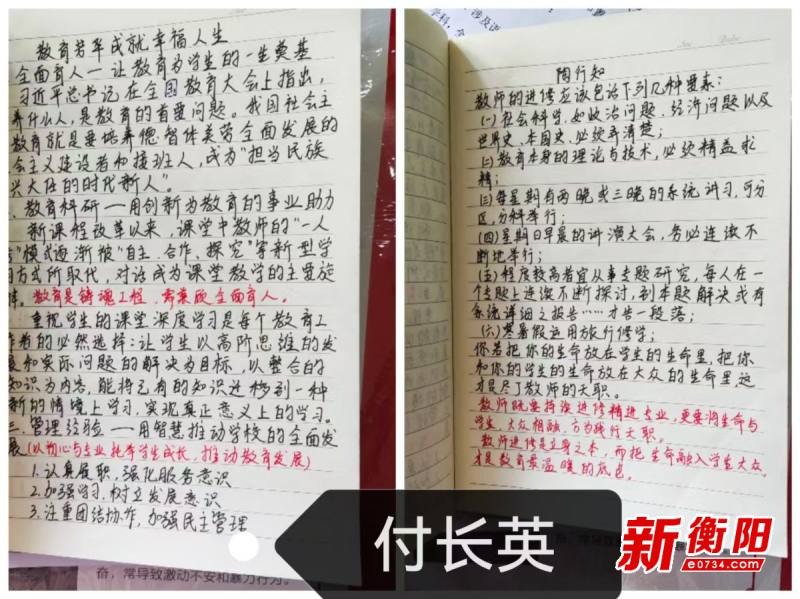 教育芳华成就幸福人生
全面育人一让教育为学生的一生奠基
习近平总书记在全国教育大会上指出，
养什么人，是教育的首要问题。我国社会主
教育就是要培养德智体美劳全面发展的
会主义建设者和接班人，成为"担当民族
兴大任的时代新人"。
、教育科研一用创新为教育的事业助力
新课程改革以来，课堂中教师的"一人
"模式逐渐被"自主、合作、探究"等新型学
方式所取代，对话成为课堂教学的主要旋
律。教育是铸魂工程，全面育人。
重视学生的课堂深度学习是每个教育工
作者的必然选择：让学生以高阶思维的发
展和实际问题的解决为目标，以整合的
知识为内容，能将已有的知识迁移到一种
新的情境上学习，实现真正意义上的学习。
三、管理经验一用智慧推动学校的全面发
展（以初心与专业托举学生成长，推动教育发展）
1.认真履职，强化服务意识
2.加强学习，树立发展意识
3.注重团结协作，加强民主管理
奋，常导致激动不安和暴力行为。
陶行知
教师的进修应该包诂下列几种要素：
(一)社会科学，如政治问题、经济问题以及
世界史、本国史，必须弄清楚；
(二)教育本身的理论与技术，必须精益求
精；
(三)每星期有两晚或三晚的系统讲习，可分
区，分科举行；
(四)星期日早晨的讲演大会，务必连续不
断地举行；
(五)程度较高者宜从事专题研究，每人在一
个专题上连续不断探讨，到本题解决或有
系统详细之报告……才告一段落；
(六)寒暑假运用旅行修学；
你若把你的生命放在学生的生命里，把你
和你的学生的生命放在大众的生命里，这
才是尽了教师的天职。
教师既要持续进修精进专业，更要将生命与
学生、大众相融，方为践行天职。
教师进修是立身之本，而把生命融入学生大众，
才是教育最温暖的底色。
付长英
新衡阳
e0734.com